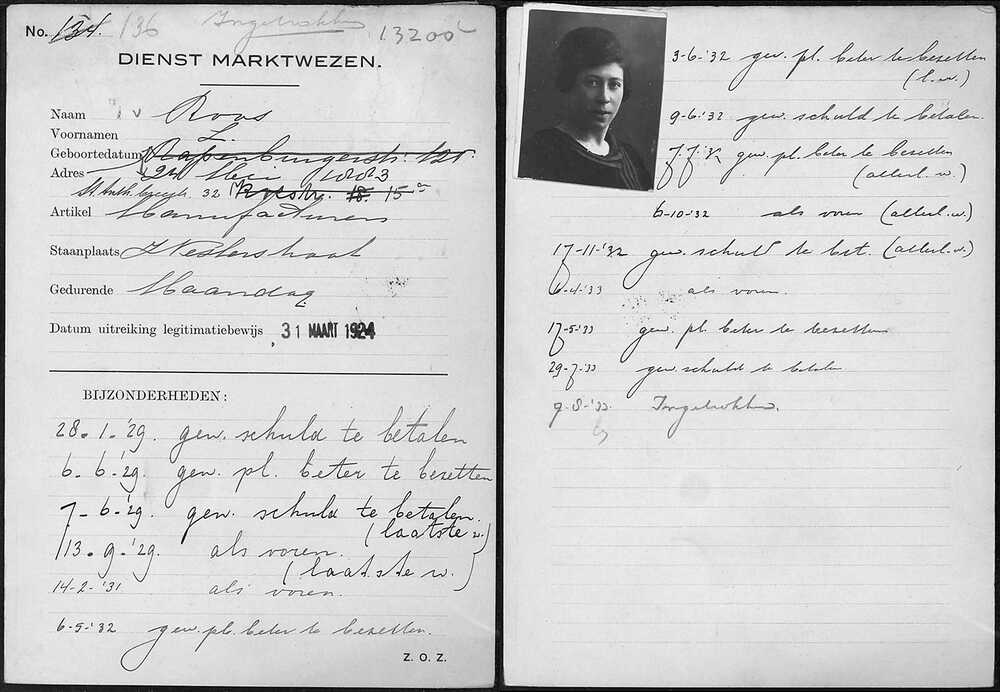 No. 134. 136 Ingetrokken 13200
DIENST MARKTWEZEN.
Naam Roos
Voornamen L.
Geboortedatum Rapenburgerstr. 125
Adres 24 Mei 1883
St. Anth. breestr. 32 18. 15a
Artikel Manufacturen
Staanplaats Westerstraat
Gedurende Maandag
Datum uitreiking legitimatiebewijs 31 MAART 1924
BIJZONDERHEDEN:
28-1-'29. gew. schuld te betalen
6-6-'29. gew. pl. beter te bezetten
7-6-'29. gew. schuld te betalen.
(laatste w.)
13-9-'29. als voren.
(laatste w.)
14-2-'31 als voren.
6-5-'32 gew. pl. beter te bezetten.
Z. O. Z.
3-6-'32 gew. pl. beter te bezetten
(l.w.)
9-6-'32 gew. schuld te betalen.
7-7-'32 gew. pl. beter te bezetten
(allerl. w.)
6-10-'32 als voren (allerl. w.)
17-11-'32 gew. schuld te bet. (allerl. w.)
6-4-'33 als voren.
17-5-'33 gew. pl. beter te bezetten
29-7-'33 gew. schuld te betalen
9-8-'33. Ingetrokken.